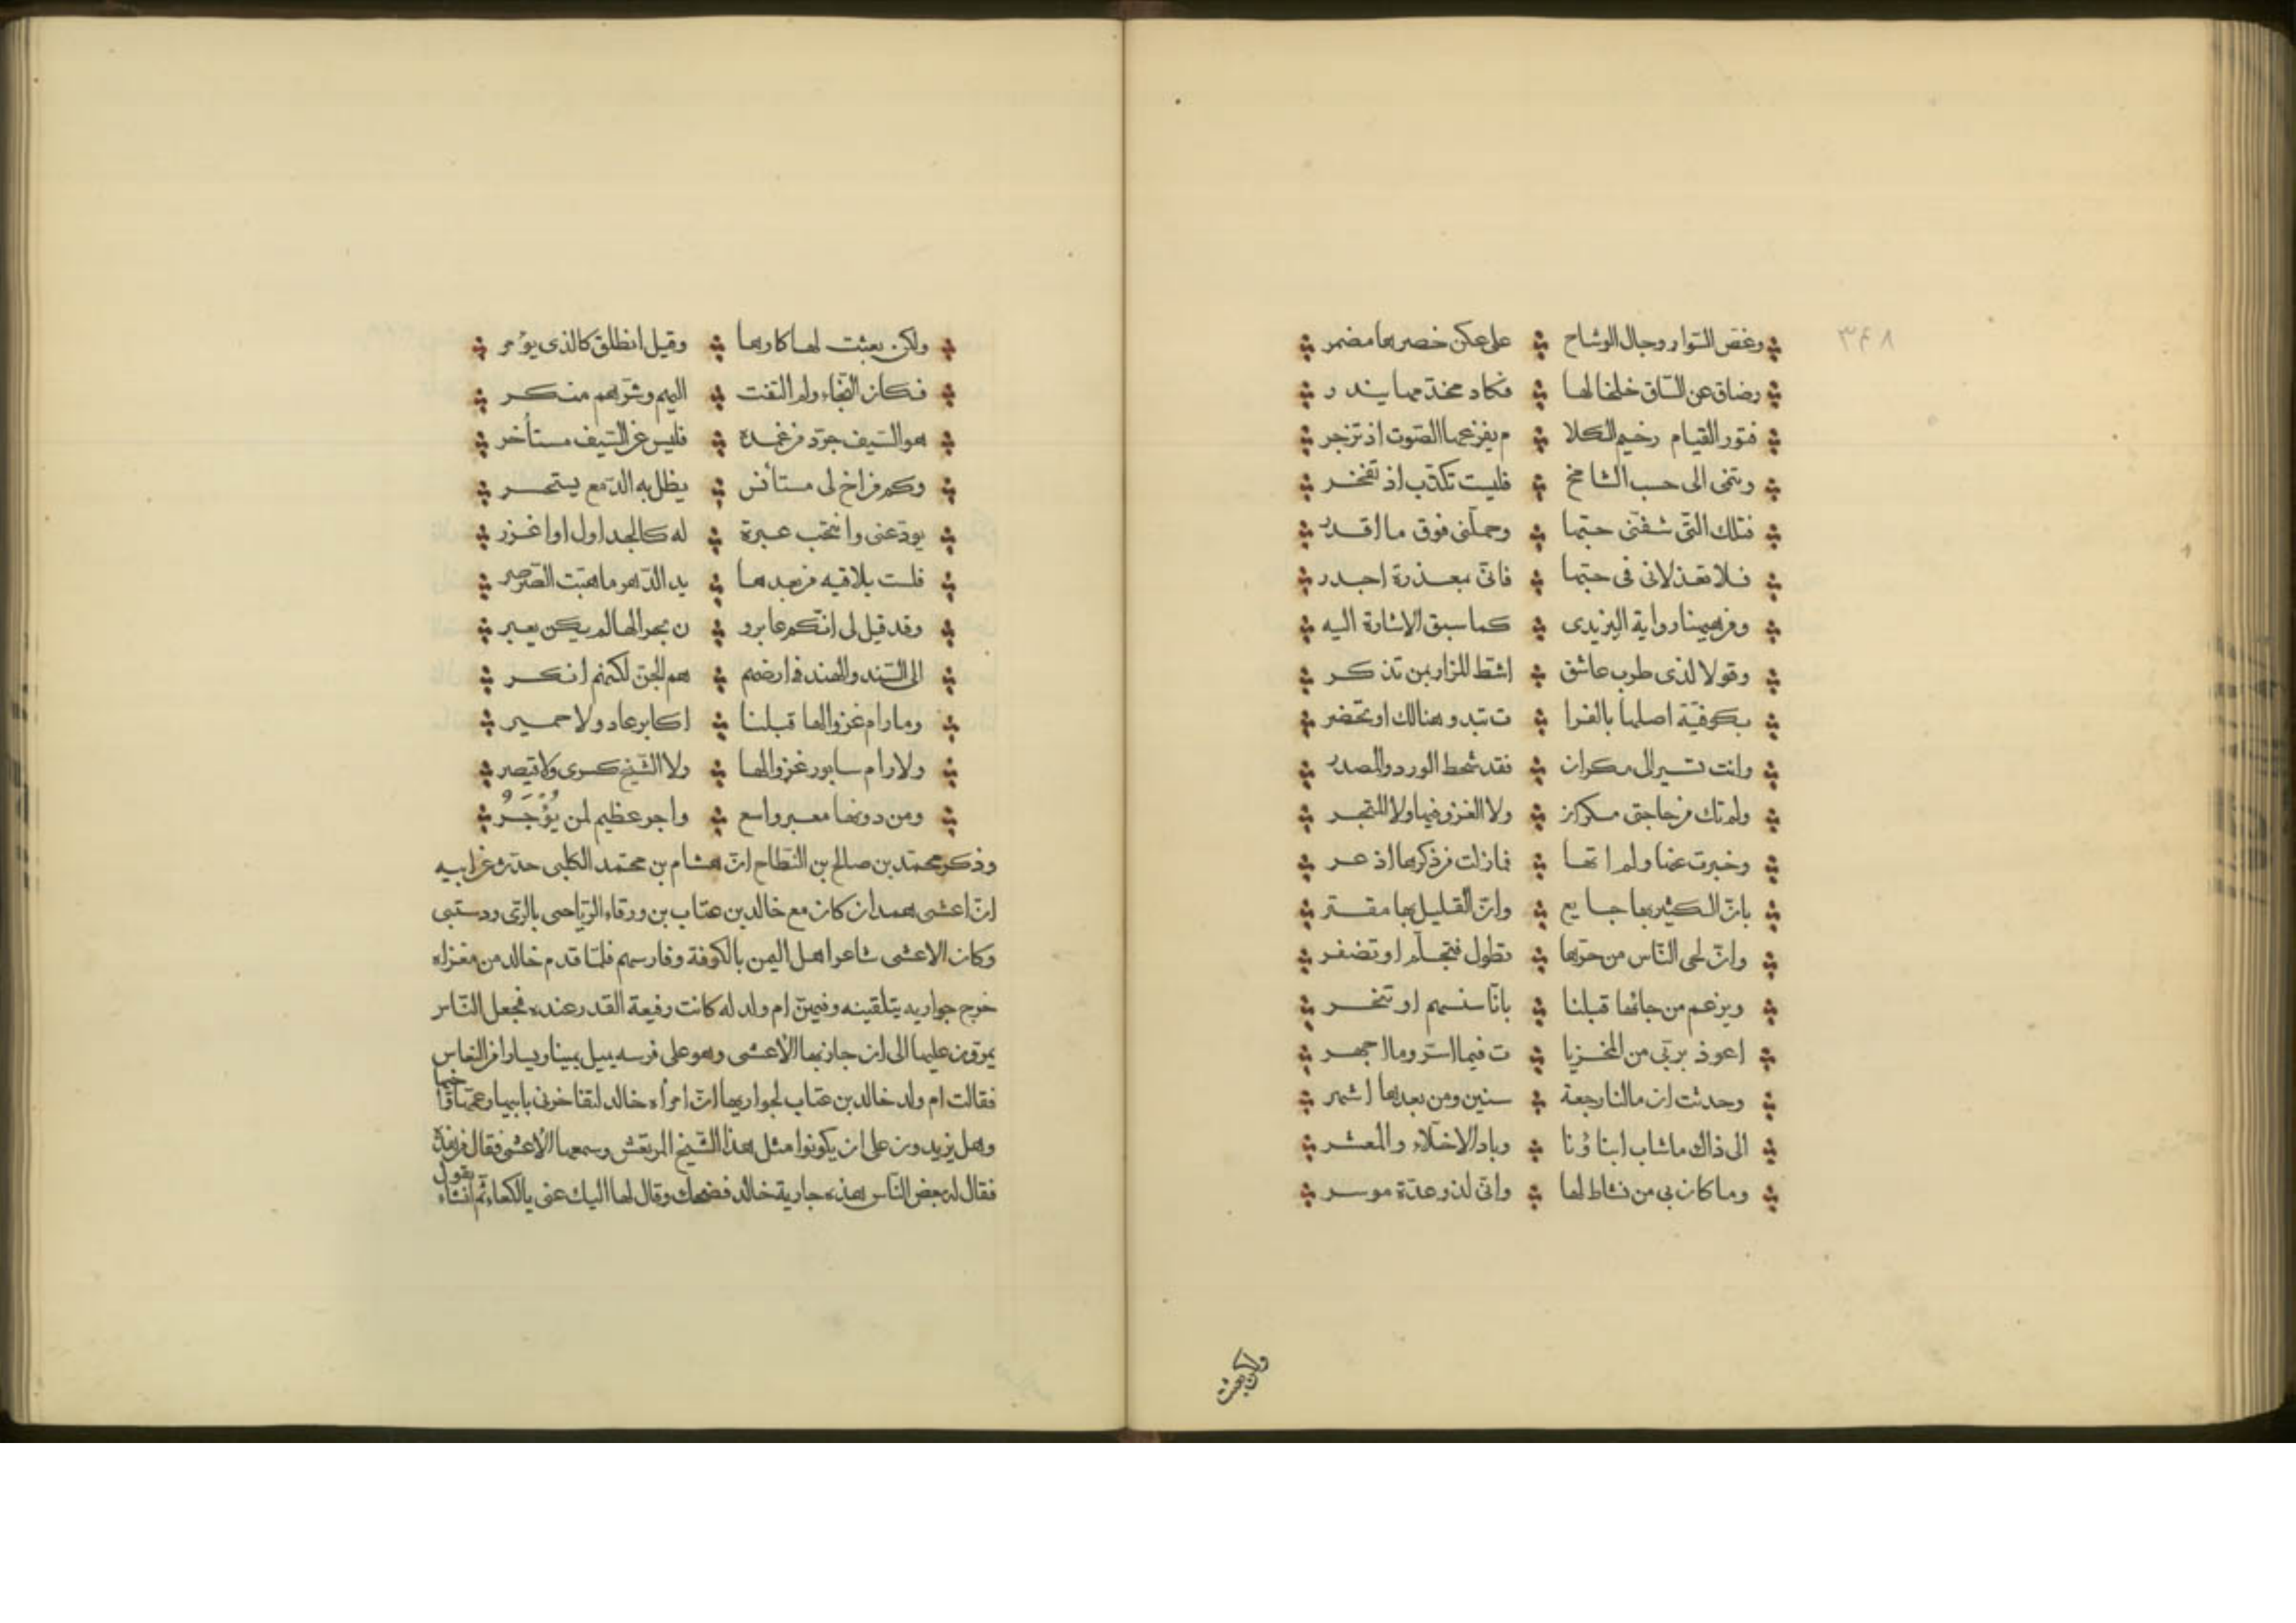 ٣٤٨
وغصّ السّوار وجال الوشاح ❖ على عكن خصرها مضمر
وضاق عن السّاق خلخالها ❖ فكاد مخدّمها يندر
فتور القيام رخيم الكلا ❖ م يفزعها الصّوت اذ تزجر
وتنمى الى حسب الشامخ ❖ فليست تكذّب اذ تفخر
فتلك التّى شفّنى حبّها ❖ وحمّلنى فوق ما اقدر
فلا تعذلانى فى حبّها ❖ فانّى بمعذرة اجدر
ومن هيهنا رواية اليزيدى ❖ كما سبق الاشارة اليه
وقولا لذى طرب عاشق ❖ اشطّ المزار بمن تذكر
بكوفيّة اصلها بالفرا ❖ ت تبدو هنالك او تحضر
وانت تسير الى مكران ❖ فقد شحط الورد والمصدر
ولم تك من حاجتى مكران ❖ ولا الغزو فيها ولا المتجر
وخبرت عنها ولم اتها ❖ فمازلت من ذكرها اذعر
بانّ الكثير بها جايع ❖ وانّ القليل بها مقتر
وانّ لحى النّاس من حرّها ❖ تطول فتجلم او تضفر
ويزعم من جائها قبلنا ❖ بانّا سنسهم او تنحر
اعوذ بربّى من المخزيا ❖ ت فيما اسرّ وما اجهر
وحدثت ان مالنا رجعة ❖ سنين ومن بعدها اشهر
الى ذاك ماشاب ابناؤنا ❖ وباد الاخلّاء والمعشر
وما كان بى من نشاط لها ❖ وانّى لذو عدّة موسر
ولكن بعثت
ولكن بعثت لها كارها ❖ وقيل انطلق كالذى يؤمر
فكان النّجاء ولم التفت ❖ اليهم وشرّهم منكر
هو السّيف جرّد من غمده ❖ فليس عن السّيف مستأخر
وكم من اخ لى مستأنس ❖ يظل به الدّمع يستحسر
يودّعنى وانتحب عبرة ❖ له كالجداول او اغزر
فلست بلاقيه من بعدها ❖ يد الدّهر ما هبّت الصّرصر
وقد قيل لى انّكم عابرو ❖ ن بحرا لها لم يكن يعبر
الى السّند والهند فى ارضهم ❖ هم الجنّ لكنهم انكر
وما رام غزوا لها قبلنا ❖ اكابر عاد ولا حمير
ولا رام سابور غزوا لها ❖ ولا الشّيخ كسرى ولا قيصر
ومن دونها معبر واسع ❖ واجر عظيم لمن يُؤْجَرُ
وذكر محمّد بن صالح بن النّطاح انّ هشام بن محمّد الكلبى حدّث عن ابيه
انّ اعشى همدان كان مع خالد بن عتّاب بن ورقاء الرّياحى بالرّى ودستبى
وكان الاعشى شاعر اهل اليمن بالكوفة وفارسهم فلمّا قدم خالد من مغزاه
خرج جواريه يتلقينه وفيهنّ ام ولد له كانت رفيعة القدر عنده فجعل النّاس
يمرّون عليها الى ان جاز بها الأعشى وهو على فرسه يميل يمينا ويسارا من النعاس
فقالت ام ولد خالد بن عتاب لجواريها انّ امرأه خالد لتفاخرنى بابيها وعمّها واخيها
وهل يزيدون على ان يكونوا مثل هذا الشّيخ المرتعش وسمعها الأعشى فقال من هذه
فقال له بعض النّاس هذه جارية خالد فضحك وقال لها اليك عنى يالكعاء ثم انشاء يقول